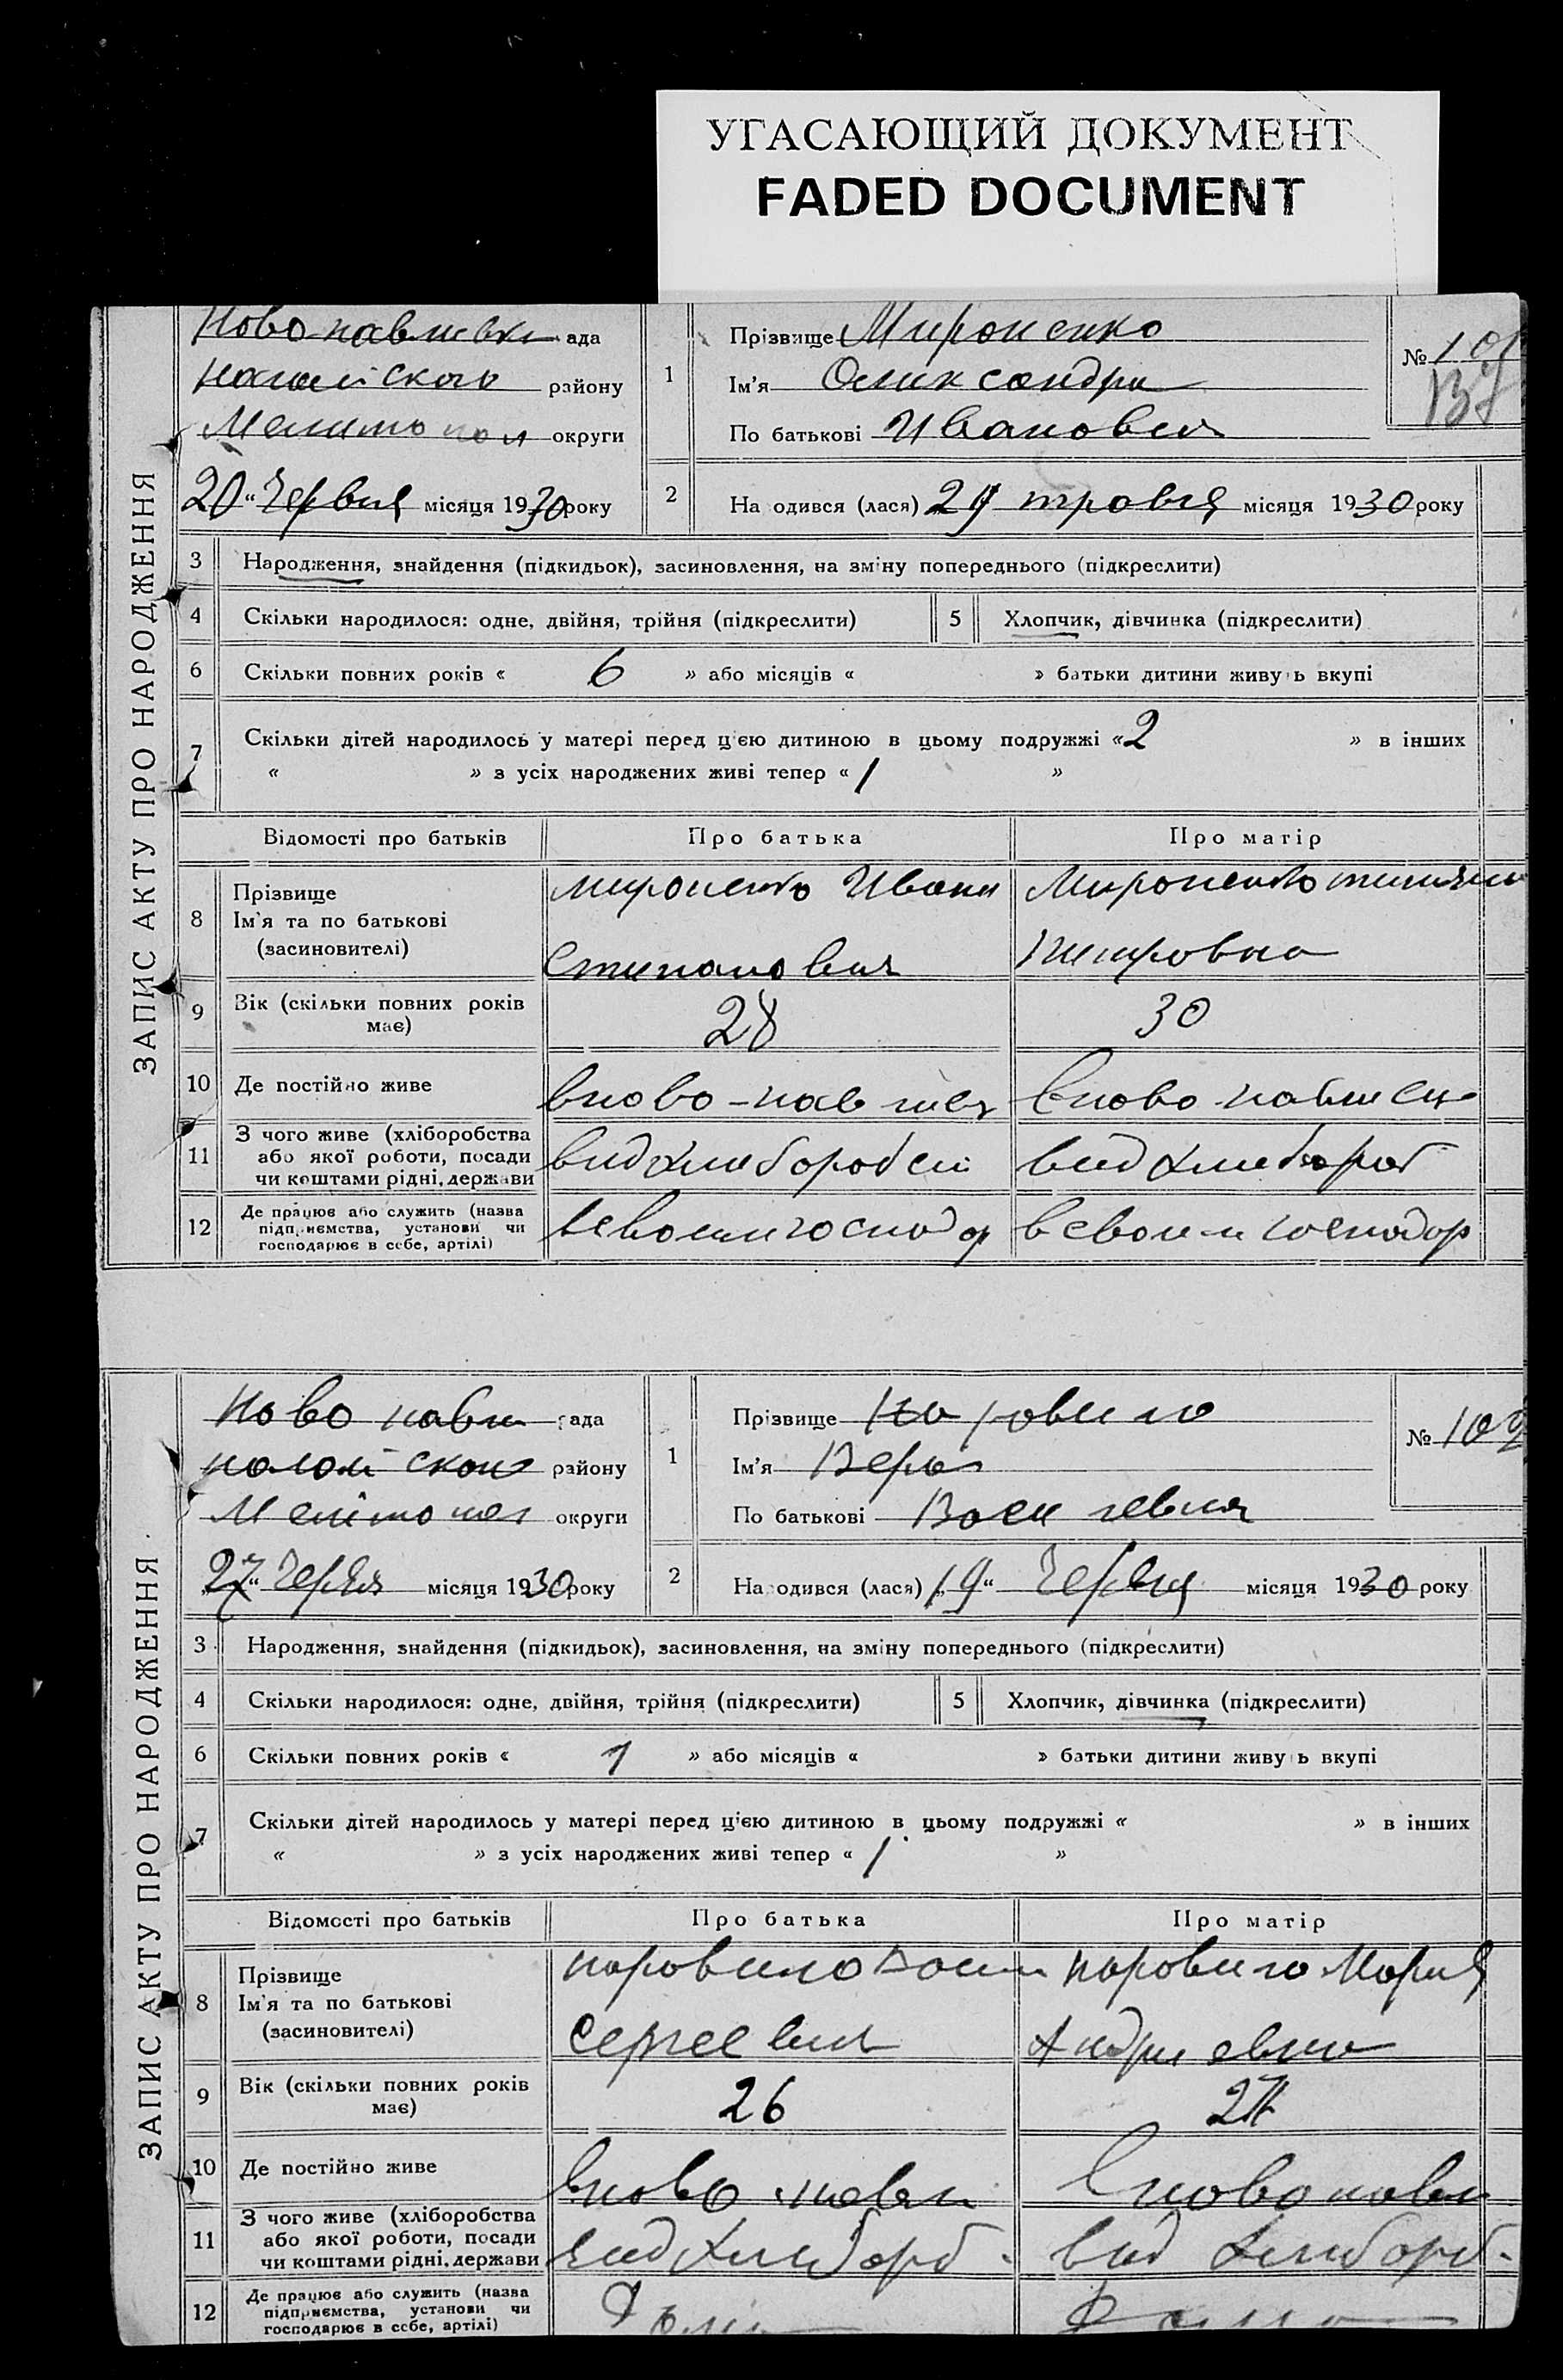 УГАСАЮЩИЙ ДОКУМЕНТ
FADED DOCUMENT
ЗАПИС АКТУ ПРО НАРОДЖЕННЯ
Ново павливки ада
району
Мелитопол округи
20 "Червня місяця 1930 року
1
Прізвище Мироненко
Ім'я Олександра
По батькові Иванович
№ 101
2
На одився (лася) 29 тровня місяця 1930 року
3 Народження, знайдення (підкидьок), засиновлення, на зміну попереднього (підкреслити)
4 Скільки народилося: одне, двійня, трійня (підкреслити) 5 Хлопчик, дівчинка (підкреслити)
6 Скільки повних років « 6 » або місяців « » батьки дитини живуть вкупі
7 Скільки дітей народилось у матері перед цією дитиною в цьому подружжі «2 » в інших
« » з усіх народжених живі тепер « 1 »
Відомості про батьків Про батька Про матір
8 Прізвище
Ім'я та по батькові
(засновителі)
Мироненко Иван
Степанович
Мироненко
Петровна
9 Вік (скільки повних років
має)
28 30
10 Де постійно живе
вново-пав вново павли
11 З чого живе (хліборобства
або якої роботи, посади
чи коштами рідні, держави
вид хлибороб вид хлибороб
12 Де працює або служить (назва
підприємства, установи чи
господарює в себе, артілі)
в своим господар в своим господар
ЗАПИС АКТУ ПРО НАРОДЖЕННЯ
Ново павл ада
району
Мелітопол округи
27" Червня місяця 1930 року
1
Прізвище
Ім'я Вера
По батькові Василевня
№ 102
2
На одився (лася) 19" Червня місяця 1930 року
3 Народження, знайдення (підкидьок), засиновлення, на зміну попереднього (підкреслити)
4 Скільки народилося: одне, двійня, трійня (підкреслити) 5 Хлопчик, дівчинка (підкреслити)
6 Скільки повних років « 1 » або місяців « » батьки дитини живуть вкупі
7 Скільки дітей народилось у матері перед цією дитиною в цьому подружжі « » в інших
« » з усіх народжених живі тепер « 1 »
Відомості про батьків Про батька Про матір
8 Прізвище
Ім'я та по батькові
(засиновителі)
Сергеевич
Мария
Андриевна
9 Вік (скільки повних років
має)
26
10 Де постійно живе
вново павл вново павл
11 З чого живе (хліборобства
або якої роботи, посади
чи коштами рідні, держави
вид хлиборб вид хлиборб
12 Де працює або служить (назва
підприємства, установи чи
господарює в себе, артілі)